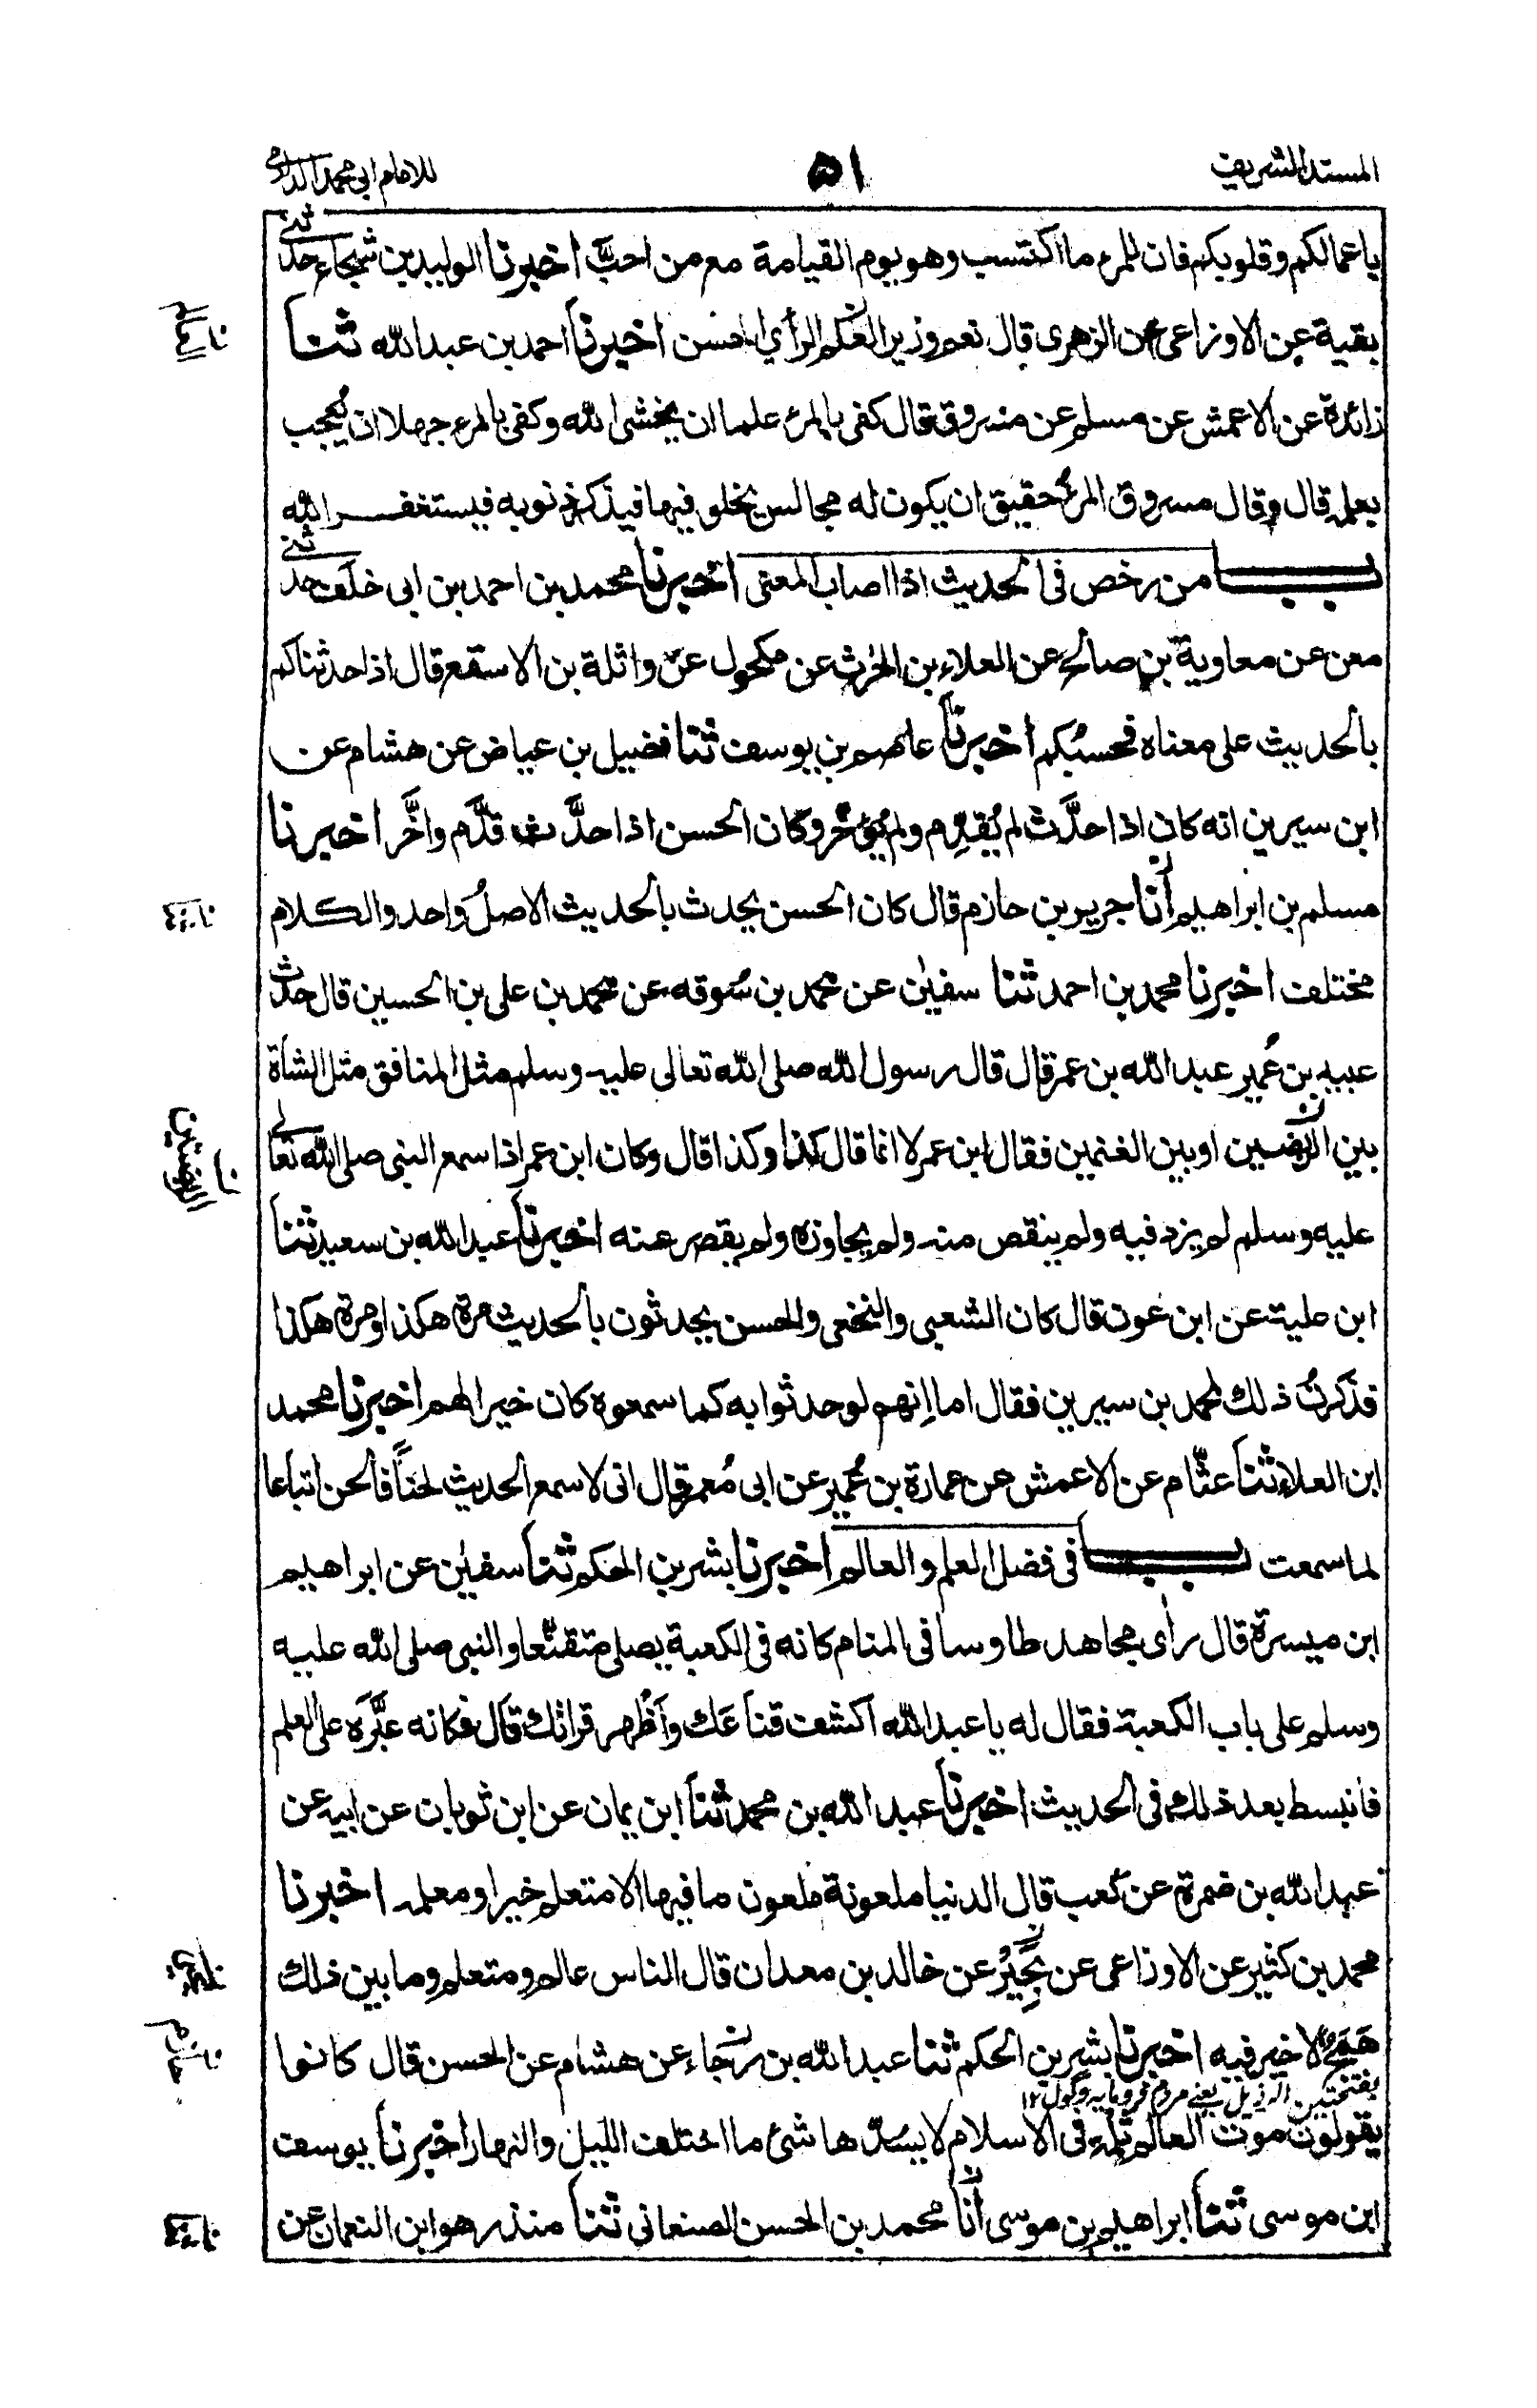 المسند الشريف
٥١
للامام ابي محمد الدارمي
باعمالكم وقلوبكم فان للمرء ما اكتسب وهو يوم القيامة مع من احبَّ اخبرنا الوليد بن شجاع حدثني
بقية عن الاوزاعي عن الزهري قال نعم وزير العلم الرأي الحسن اخبرنا احمد بن عبد الله ثنا
زائدة عن الاعمش عن مسلم عن مسروق قال كفى بالمرء علما ان يخشى الله وكفى بالمرء جهلا ان يُعجب
بعلمه قال وقال مسروق المرءُ حقيق ان يكون له مجالس يخلو فيها فيذكر ذنوبه فيستغفر الله
باب من رخص في الحديث اذا اصاب المعنى اخبرنا محمد بن احمد بن ابي خلف حدثني
معن عن معاوية بن صالح عن العلاء بن الحرث عن مكحول عن واثلة بن الاسقع قال اذا حدثناكم
بالحديث على معناه فحسبُكم اخبرنا عاصم بن يوسف ثنا فضيل بن عياض عن هشام عن
ابن سيرين انه كان اذا حدَّث لم يُقدِّم ولم يُؤخر وكان الحسن اذا حدَّث قدَّم واخَّر اخبرنا
مسلم بن ابراهيم أنا جرير بن حازم قال كان الحسن يحدث بالحديث الاصلُ واحد والكلام
مختلف اخبرنا محمد بن احمد ثنا سفين عن محمد بن سُوقه عن محمد بن علي بن الحسين قال حدث
عبيد بن عُمير عبد الله بن عمر قال قال رسول الله صلى الله تعالى عليه وسلم مثل المنافق مثل الشاة
بين الربضين او بين الغنمين فقال ابن عمر لا انما قال كذا وكذا قال وكان ابن عمر اذا سمع النبي صلى الله تعالى
الربضتين
عليه وسلم لم يزد فيه ولم ينقص منه ولم يجاوزه ولم يقصر عنه اخبرنا عبد الله بن سعيد ثنا
ابن علية عن ابن عون قال كان الشعبي والنخعي والحسن يحدثون بالحديث مرة هكذا ومرة هكذا
فذكرتُ ذلك لمحمد بن سيرين فقال اما إنهم لو حدثوا به كما سمعوه كان خيرا لهم اخبرنا محمد
ابن العلاء ثنا عثّام عن الاعمش عن عمارة بن عُمير عن ابي مُعمر قال اني لاسمع الحديث لحناً فالحن اتباعا
لما سمعت باب في فضل العلم والعالم اخبرنا بشر بن الحكم ثنا سفين عن ابراهيم
ابن ميسرة قال رأى مجاهد طاوسا في المنام كانه في الكعبة يصلي متقنّعا والنبي صلى الله عليه
وسلم على باب الكعبة فقال له يا عبد الله اكشف قناعَك وأظهر قراتك قال فكانه عبَّره على العلم
فانبسط بعد ذلك في الحديث اخبرنا عبد الله بن محمد ثنا ابن يمان عن ابن ثوبان عن ابيه عن
عبد الله بن ضمرة عن كعب قال الدنيا ملعونة ملعون ما فيها الا متعلم خيرا ومعلمه اخبرنا
محمد بن كثير عن الاوزاعي عن بَحِيْر عن خالد بن معدان قال الناس عالم ومتعلم وما بين ذلك
هَمَجٌ لا خير فيه اخبرنا بشر بن الحكم ثنا عبد الله بن رجاء عن هشام عن الحسن قال كانوا
بفتحتين الرذيل يعني مردم فرومايه وگول ١٢
يقولون موت العالم ثلمة في الاسلام لا يسُدّها شئ ما اختلف الليل والنهار اخبرنا يوسف
ابن موسى ثنا ابراهيم بن موسى أنا محمد بن الحسن الصنعاني ثنا منذر هو ابن النعمان عن